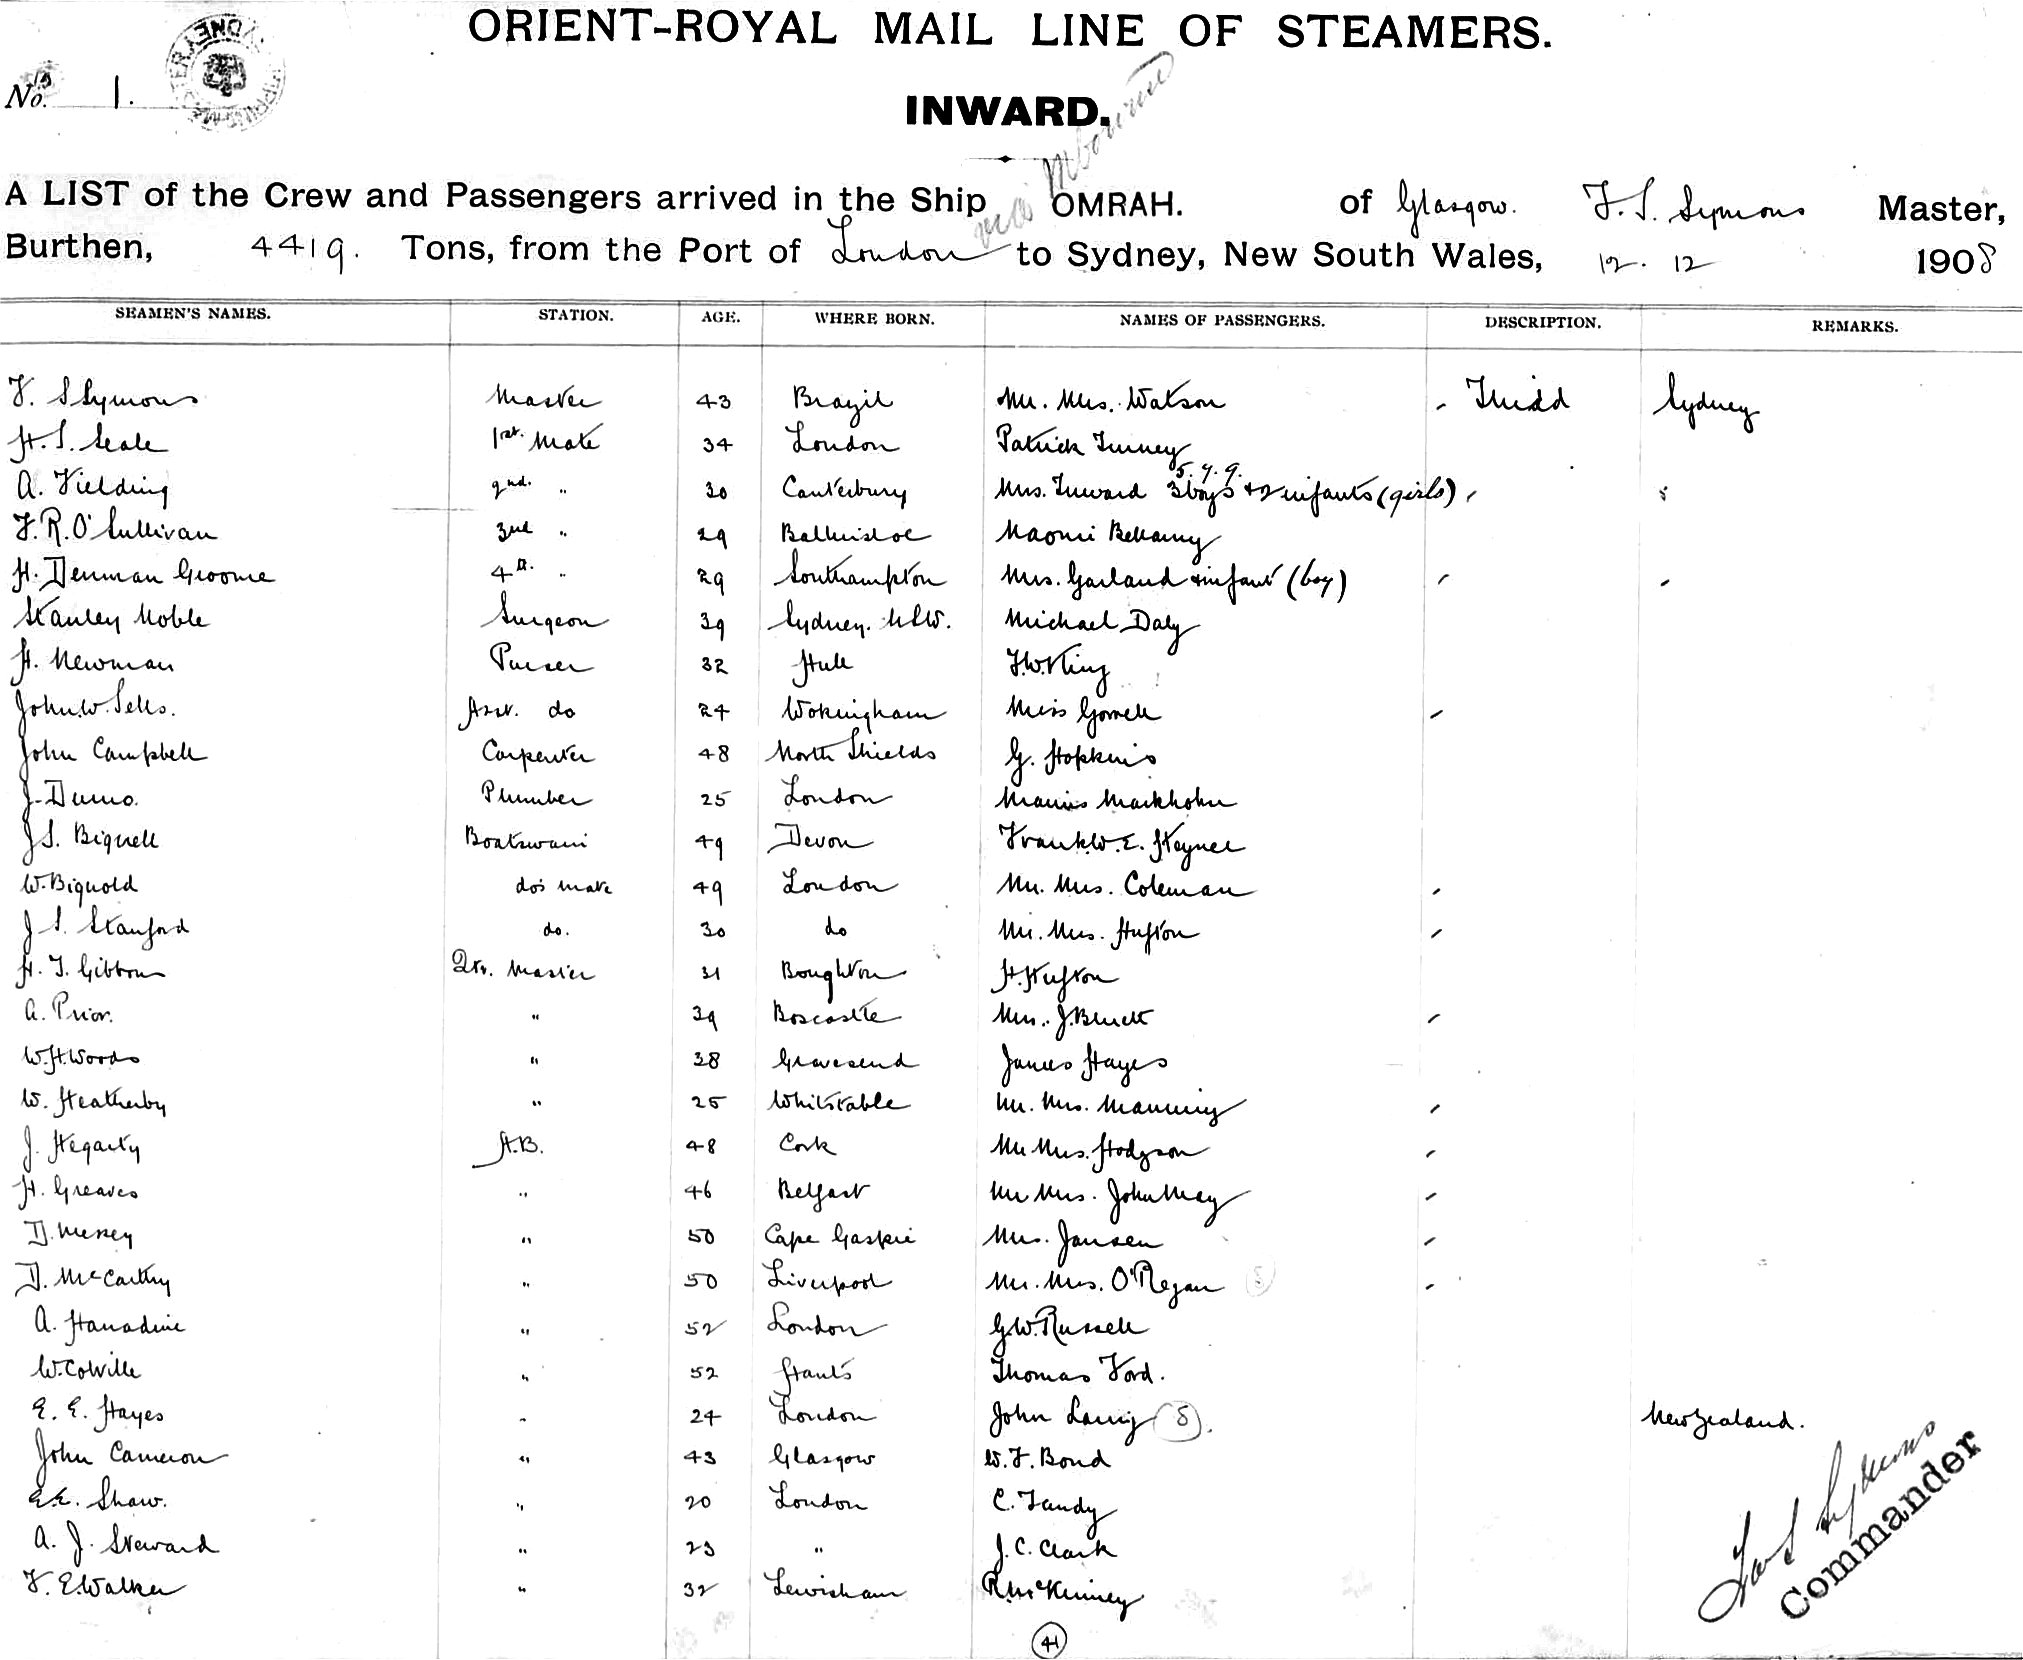 ORIENT-ROYAL MAIL LINE OF STEAMERS.
No. 1.
SYDNEY
INWARD.
via Mbourne
A LIST of the Crew and Passengers arrived in the Ship OMRAH. of Glasgow. F. S. Symons Master,
Burthen, 4419. Tons, from the Port of London to Sydney, New South Wales, 12. 12 1908
SEAMEN'S NAMES. STATION. AGE. WHERE BORN. NAMES OF PASSENGERS. DESCRIPTION. REMARKS.
F. S Symons Master 43 Brazil Mr. Mrs. Watson Third Sydney
H. S. Seale 1st. Mate 34 London Patrick
5. 7. 9.
A. Fielding 2nd. " 30 Canterbury Mrs. Inward 3 boys + 2 infants (girls)
F. R. O'Sullivan 3rd " 29 Naomi Bellamy
H. Denman Groome 4th. " 29 Southampton Mrs. Garland + infant (boy)
Stanley Noble Surgeon 39 Sydney. NSW. Michael Daly
H. Newman Purser 32 Hull F.W. King
John. W. Sells. Asst. do 24 Wokingham Miss
John Campbell Carpenter 48 North Shields G. Hopkins
J. Plumber 25 London
J S. Bignell Boatswain 49 Devon Frank. W. E.
W. Bignold do's mate 49 London Mr. Mrs. Coleman
J. S. Stanford do. 30 do Mr. Mrs. Hufton
H. J. Gibbon Qtr. Master 31 Boughton H. Hufton
A. Prior. " 39 Boscastle Mrs. J.
W. H. Woods " 38 Gravesend James Hayes
W. Heatherby " 25 Whitstable Mr. Mrs. Manning
J. Hegarty A.B. 48 Cork Mr Mrs. Hodgson
H. Greaves " 46 Belfast Mr Mrs. John May
D. " 50 Cape Gaspie Mrs. Jansen
D. McCarthy " 50 Liverpool Mr. Mrs. O'Regan
A. " 52 London G.W. Russell
W. Colville " 52 Hants Thomas Ford.
E. E. Hayes " 24 London John Laing (5). New Zealand.
John Cameron " 43 Glasgow W. F. Bond
E.E. Shaw. " 20 London C. Tandy
A. J. Steward " 23 " J. C. Clark
F. E. Walker " 32 Lewisham R. McKinney
F S Symons
Commander
41